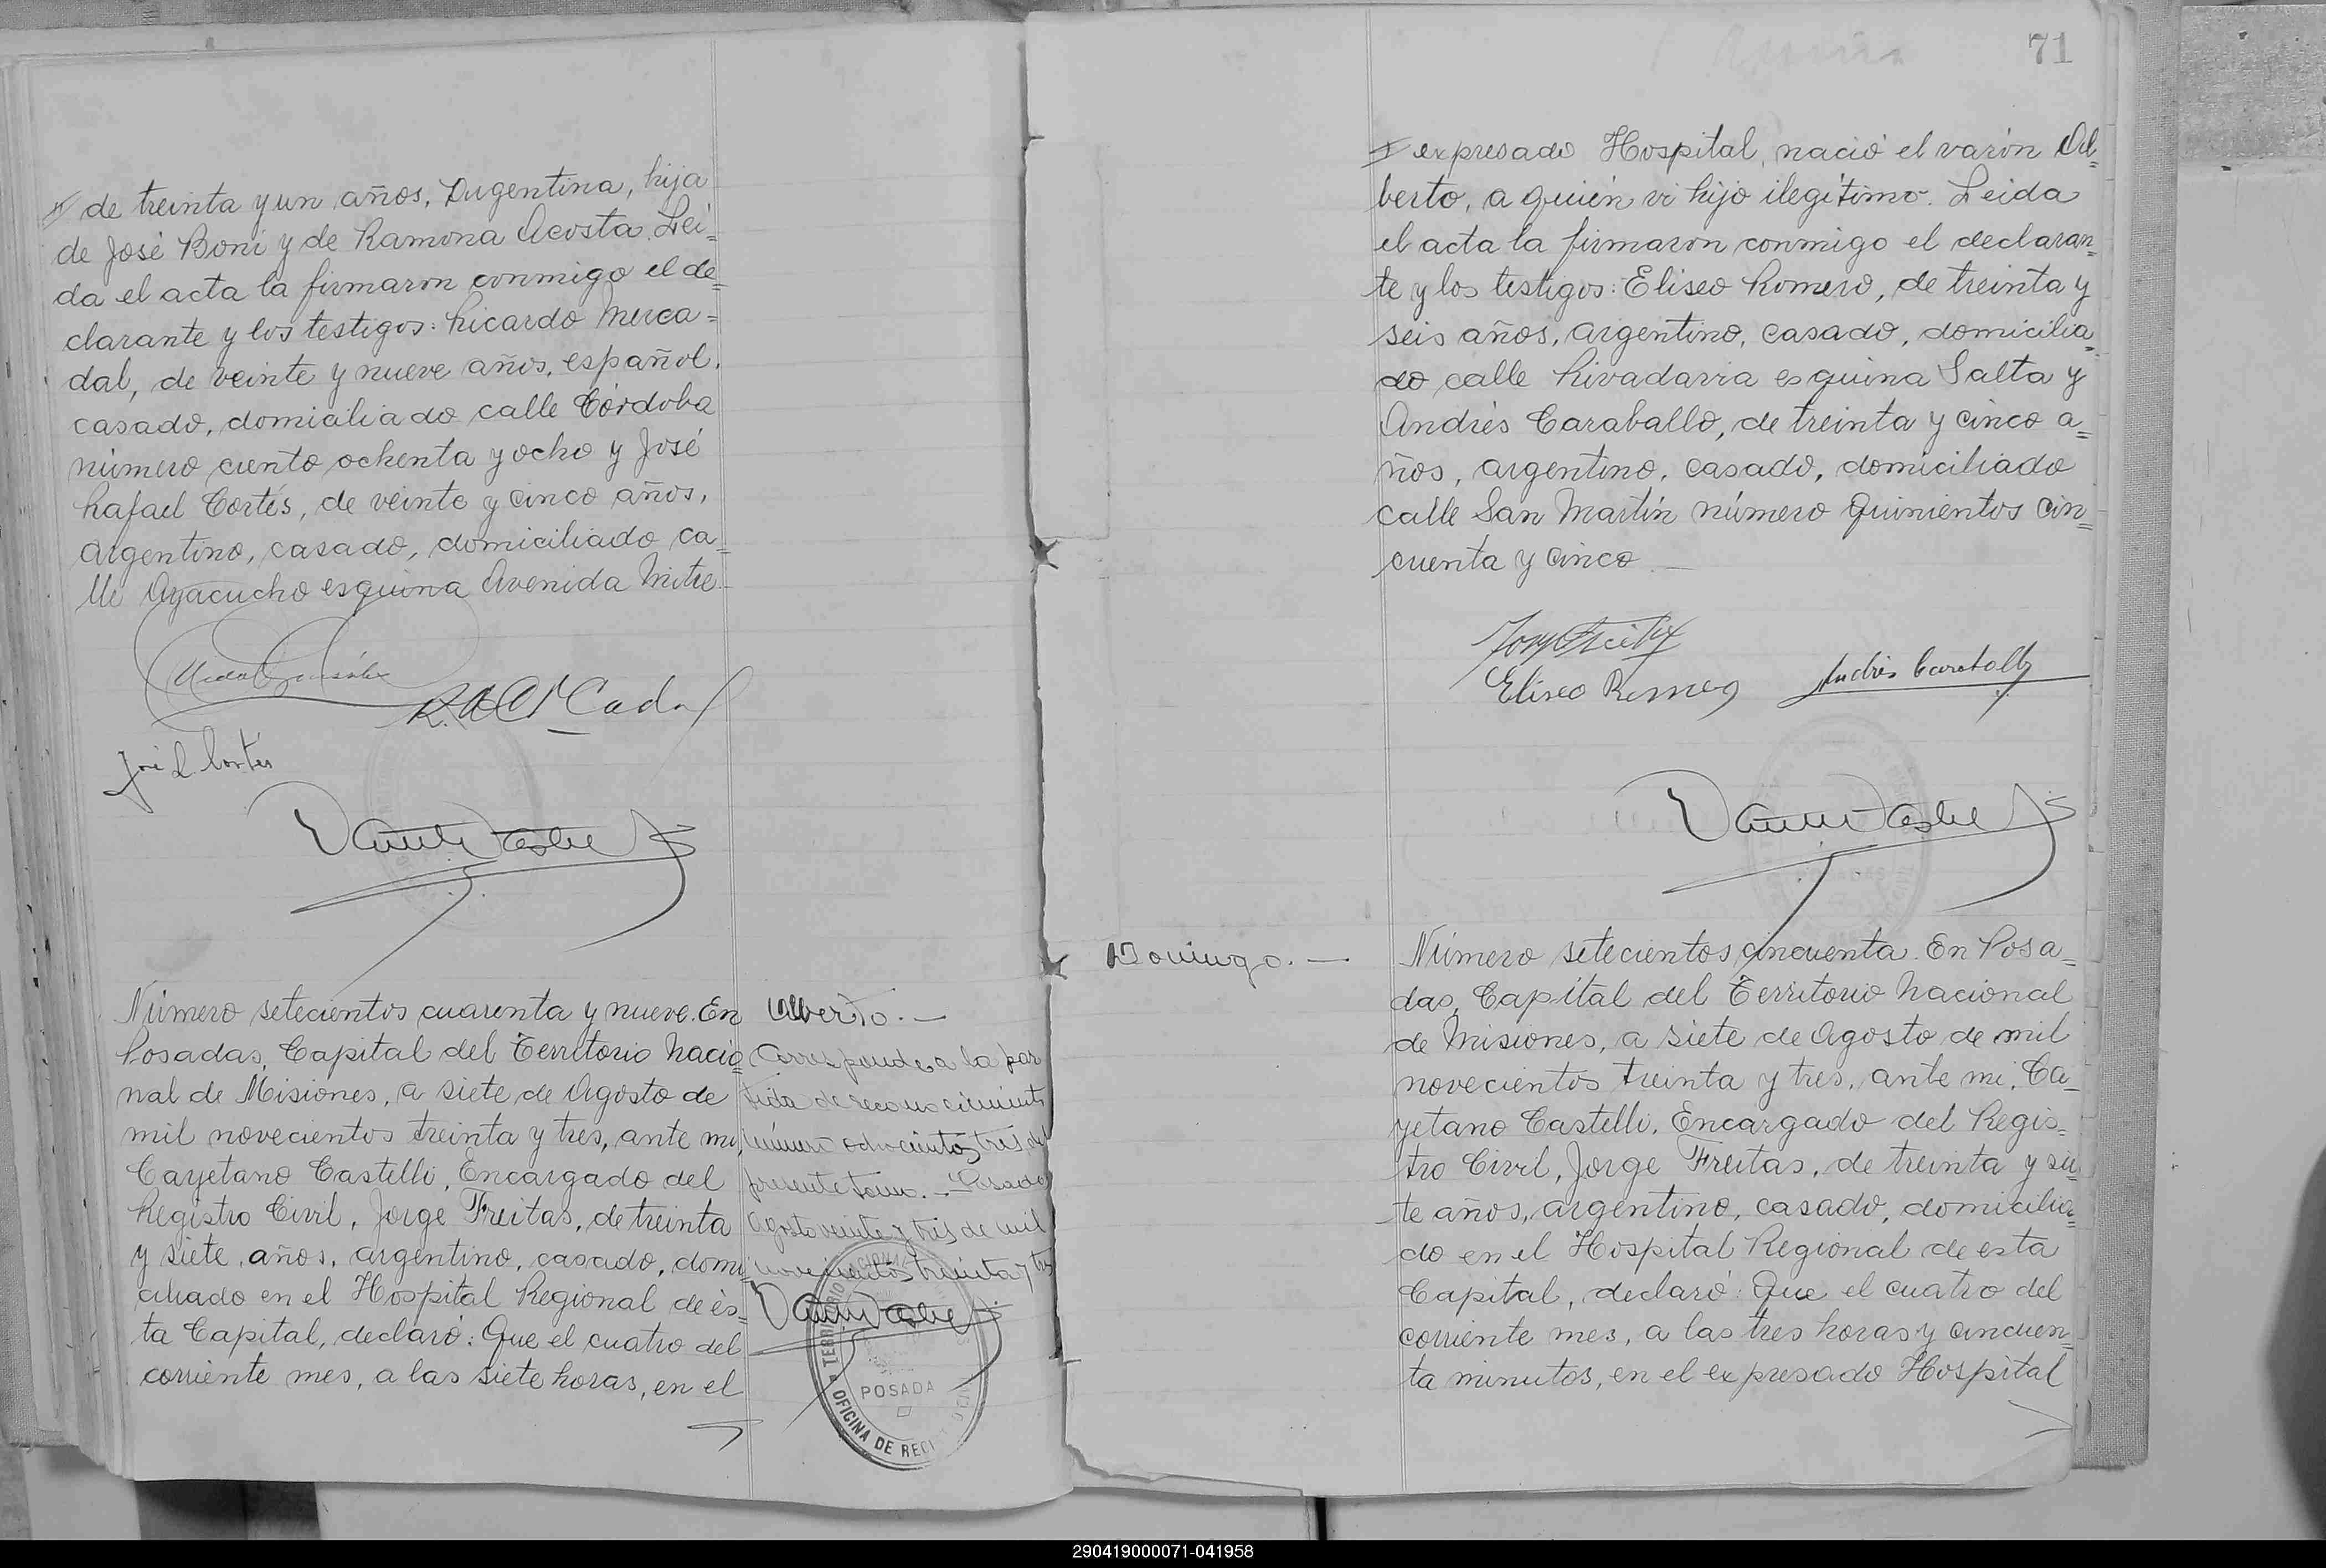 de treinta y un años, Argentina, hija
de José Boni y de Ramona Acosta. Lei=
da el acta la firmaron conmigo el de=
clarante y los testigos: Ricardo Merca=
dal, de veinte y nueve años, español,
casado, domiciliado calle Córdoba
número ciento ochenta y ocho y José
Rafael Cortés, de veinte y cinco años,
argentino, casado, domiciliado ca=
lle Ayacucho esquina Avenida Mitre.
José R Cortés
Número setecientos cuarenta y nueve. En
Posadas, Capital del Territorio Nacio=
nal de Misiones, a siete de Agosto de
mil novecientos treinta y tres, ante mi,
Cayetano Castelli, Encargado del
Registro Civil, Jorge Freitas, de treinta
y siete años, argentino, casado, domi=
ciliado en el Hospital Regional de és=
ta Capital, declaró: Que el cuatro del
corriente mes, a las siete horas, en el
Alberto. —
Corresponde a la par
tida de reconocimiento
número ochocientos tres del
presente tomo. - Posadas
Agosto veinte y tres de mil
novecientos treinta y tres
POSADA
OFICINA DE REGI
71
expresado Hospital, nació el varón Al=
berto, a quién vi hijo ilegítimo. Leida
el acta la firmaron conmigo el declaran=
te y los testigos: Eliseo Romero, de treinta y
seis años, argentino, casado, domicilia=
do calle Rivadavia esquina Salta y
Andrés Caraballo, de treinta y cinco a=
ños, argentino, casado, domiciliado
calle San Martín número quinientos cin=
cuenta y cinco. —
Jorge Freitas
Eliseo Romero Andrés Caraballo
Domingo. —
Número setecientos cincuenta. En Posa=
das, Capital del Territorio Nacional
de Misiones, a siete de Agosto de mil
novecientos treinta y tres, ante mi, Ca=
yetano Castelli, Encargado del Regis=
tro Civil, Jorge Freitas, de treinta y sie
te años, argentino, casado, domicilia=
do en el Hospital Regional de esta
Capital, declaró: Que el cuatro del
corriente mes, a las tres horas y cincuen=
ta minutos, en el expresado Hospital
290419000071-041958